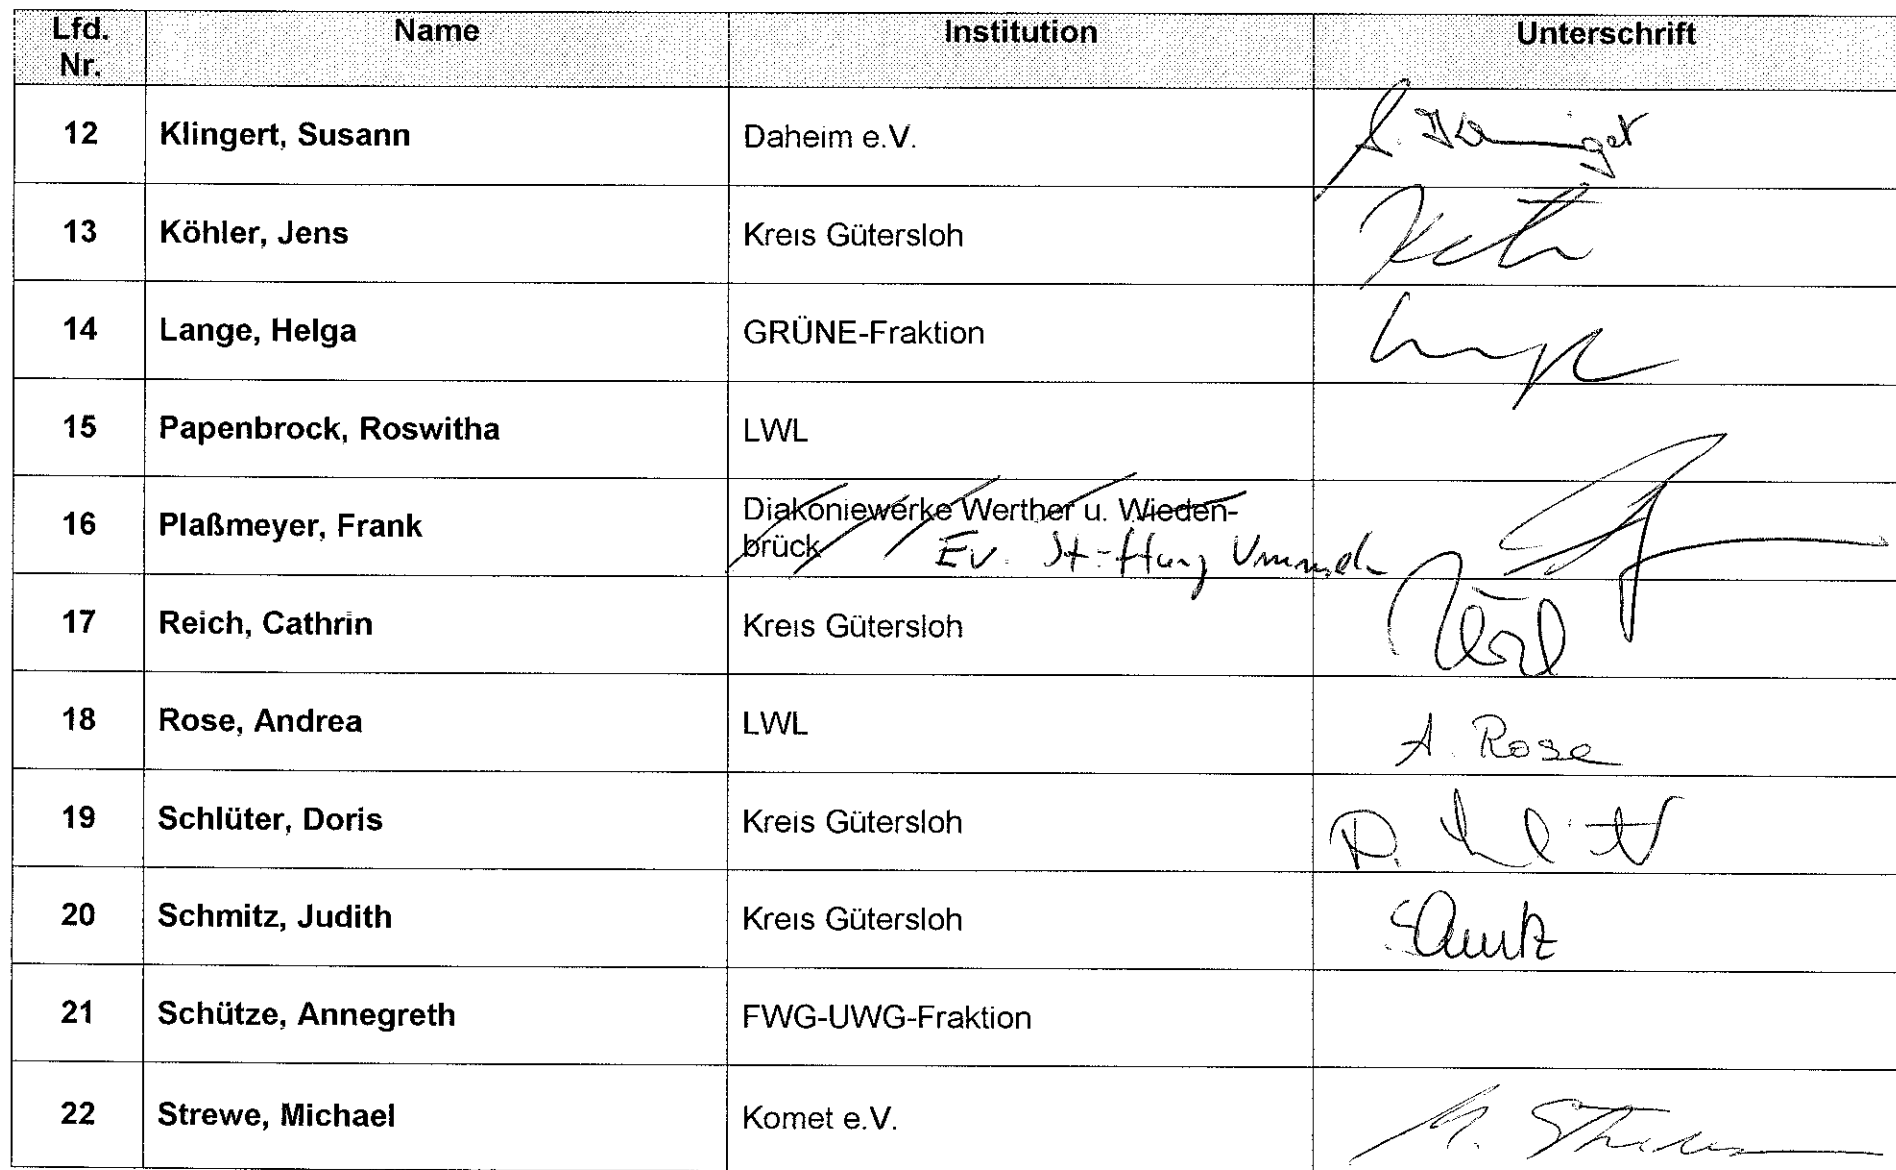 Lfd. Nr. Name Institution Unterschrift
12 Klingert, Susann Daheim e.V.
13 Köhler, Jens Kreis Gütersloh
14 Lange, Helga GRÜNE-Fraktion
15 Papenbrock, Roswitha LWL
16 Plaßmeyer, Frank Diakoniewerke Werther u. Wieden-
brück Ev. Stiftung Ummeln
17 Reich, Cathrin Kreis Gütersloh
18 Rose, Andrea LWL A. Rose
19 Schlüter, Doris Kreis Gütersloh
20 Schmitz, Judith Kreis Gütersloh Schmitz
21 Schütze, Annegreth FWG-UWG-Fraktion
22 Strewe, Michael Komet e.V.